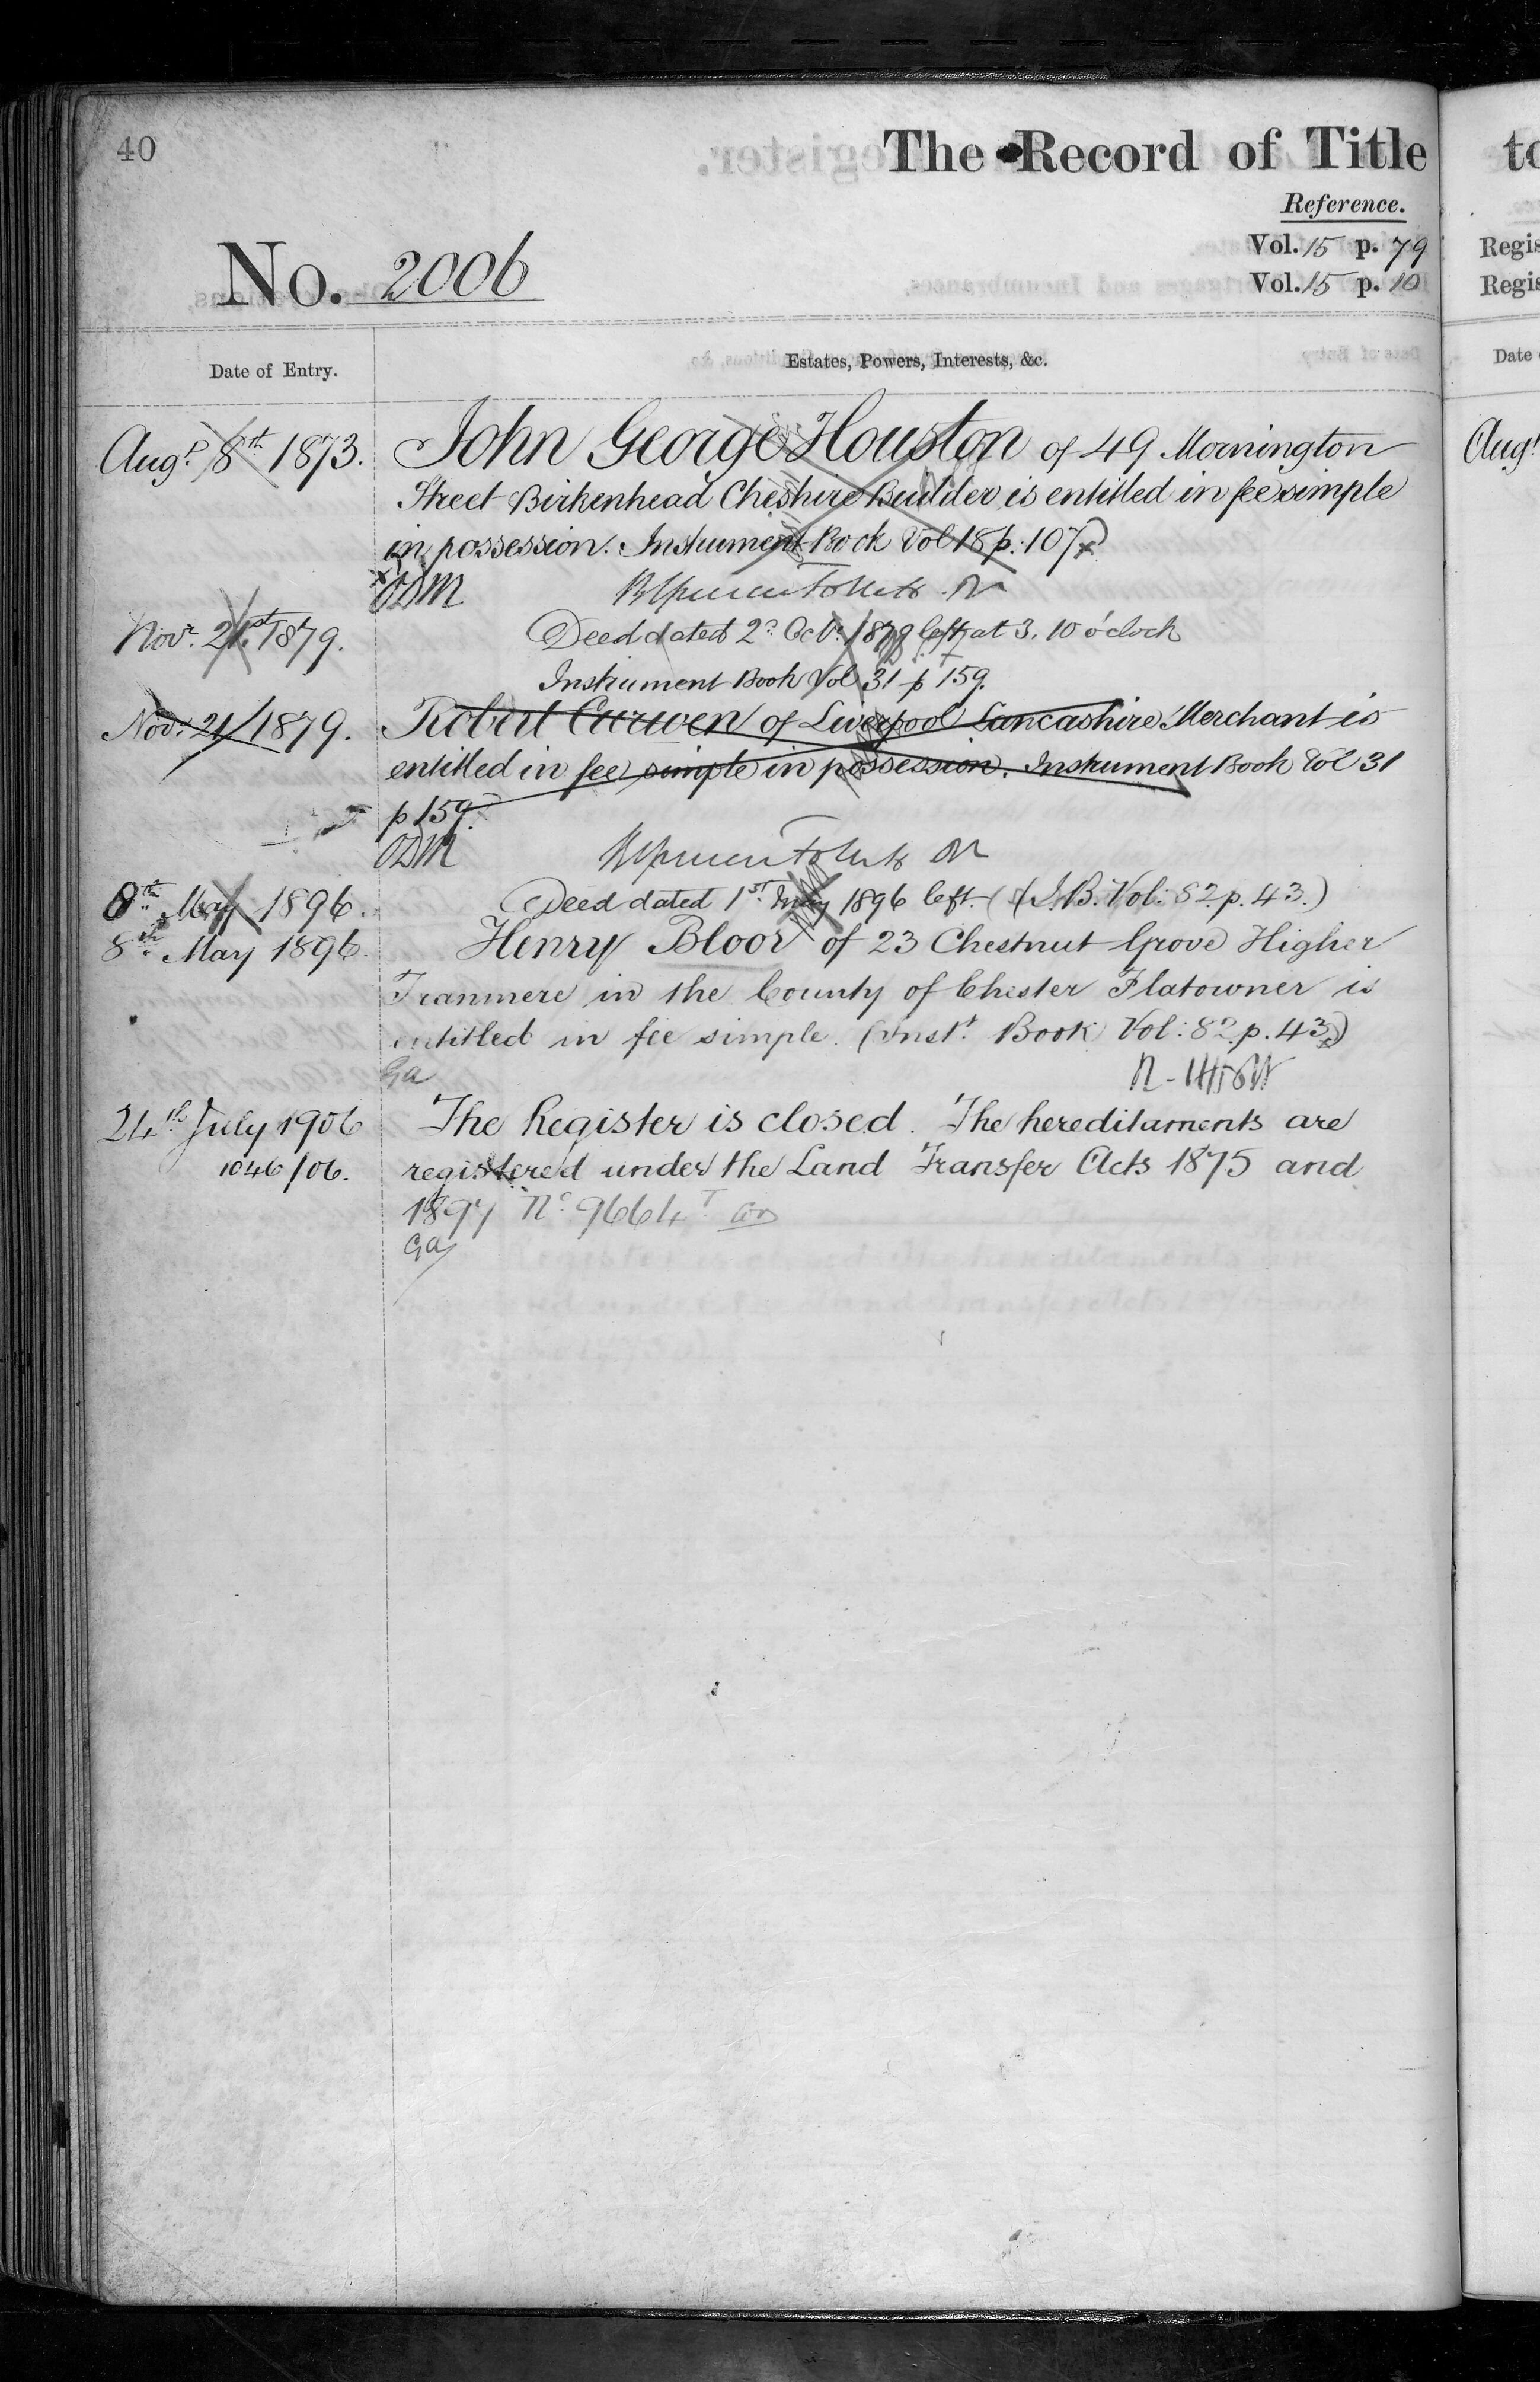 40
The Record of Title
Reference.
Vol. 15 p. 79
Vol. 15 p. 10
No. 2006
Date of Entry.
Estates, Powers, Interests, &c.
Augt. 8th 1873.
John George Houston of 49 Mornington
Street Birkenhead Cheshire Builder is entitled in fee simple
in possession. Instrument Book Vol 18 p. 107
ODM
Novr. 21st 1879.
Deed dated 2d Octr. 1879 left at 3.10 o'clock
Instrument Book Vol 31 p 159.
Nov: 21 1879.
Robert Curwen of Liverpool Lancashire Merchant is
entitled in fee simple in possession. Instrument Book Vol 31
p 159.
ODM
8th May 1896.
Deed dated 1st May 1896 left. (I.B. Vol: 82 p. 43.)
8th May 1896.
Henry Bloor of 23 Chestnut Grove Higher
Tranmere in the County of Chester Flatowner is
entitled in fee simple. (Inst. Book Vol: 82 p. 43)
Ga
24th July 1906
1046/06.
The Register is closed. The hereditaments are
registered under the Land Transfer Acts 1875 and
1897 No 9664
Ga
to
Regis
Regis
Date
Augt